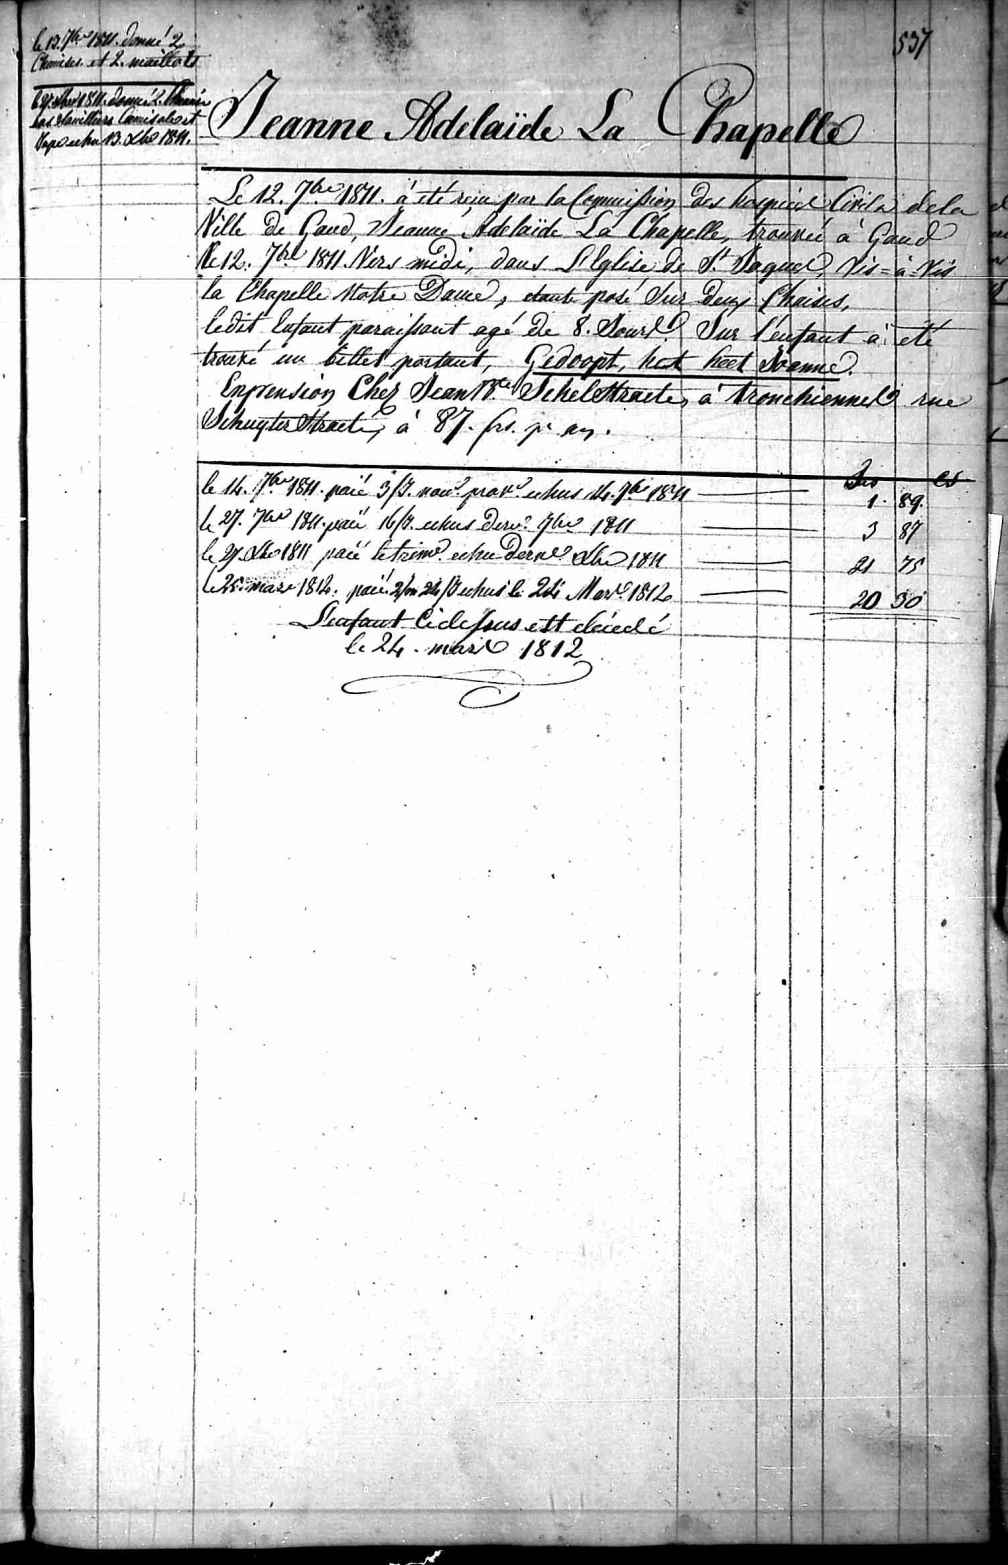 537
le 13. 7bre 1811. donné 2
Chemises et 2. maillots
le 27. Xbre 1811. donné 2. Chemis
bas Camisole et
echu 13. Xbre 1811.
Jeanne Adelaïde La Chapelle
Le 12. 7bre 1811. à été reçu par la Commission des hospices Civils de la
Ville de Gand, Jeanne Adelaïde La Chapelle, trouvée à Gand
le 12. 7bre 1811 Vers midi, dans l'Eglise de St Jaques, Vis=à=Vis
la Chapelle Notre Dame, étant posé Sur deux Chaises,
ledit Enfant paraissant agé de 8. Jours. Sur l'enfant à été
trouvé un billet portant, Gedoopt, het heet Joanne.
En pension Chez Jean Bte Schelstraete, à tronchiennes rue
Schuyter Straete, à 87. frs. pr an.
frs cs
le 14. 7bre 1811. paié 3/J. nour. prov. echus 14. 7bre 1811 1. 89.
le 27. 7bre 1811. paié 16/J. echus dern. 7bre 1811 3 87
le 27. Xbre 1811 paié le trim. echu Dern. Xbre 1811 21 75
le 25. mars 1812. paié 2/m 24/J echus le 24 Mars 1812 20 30
L'enfant Ci dessus est décédé
le 24. mars 1812